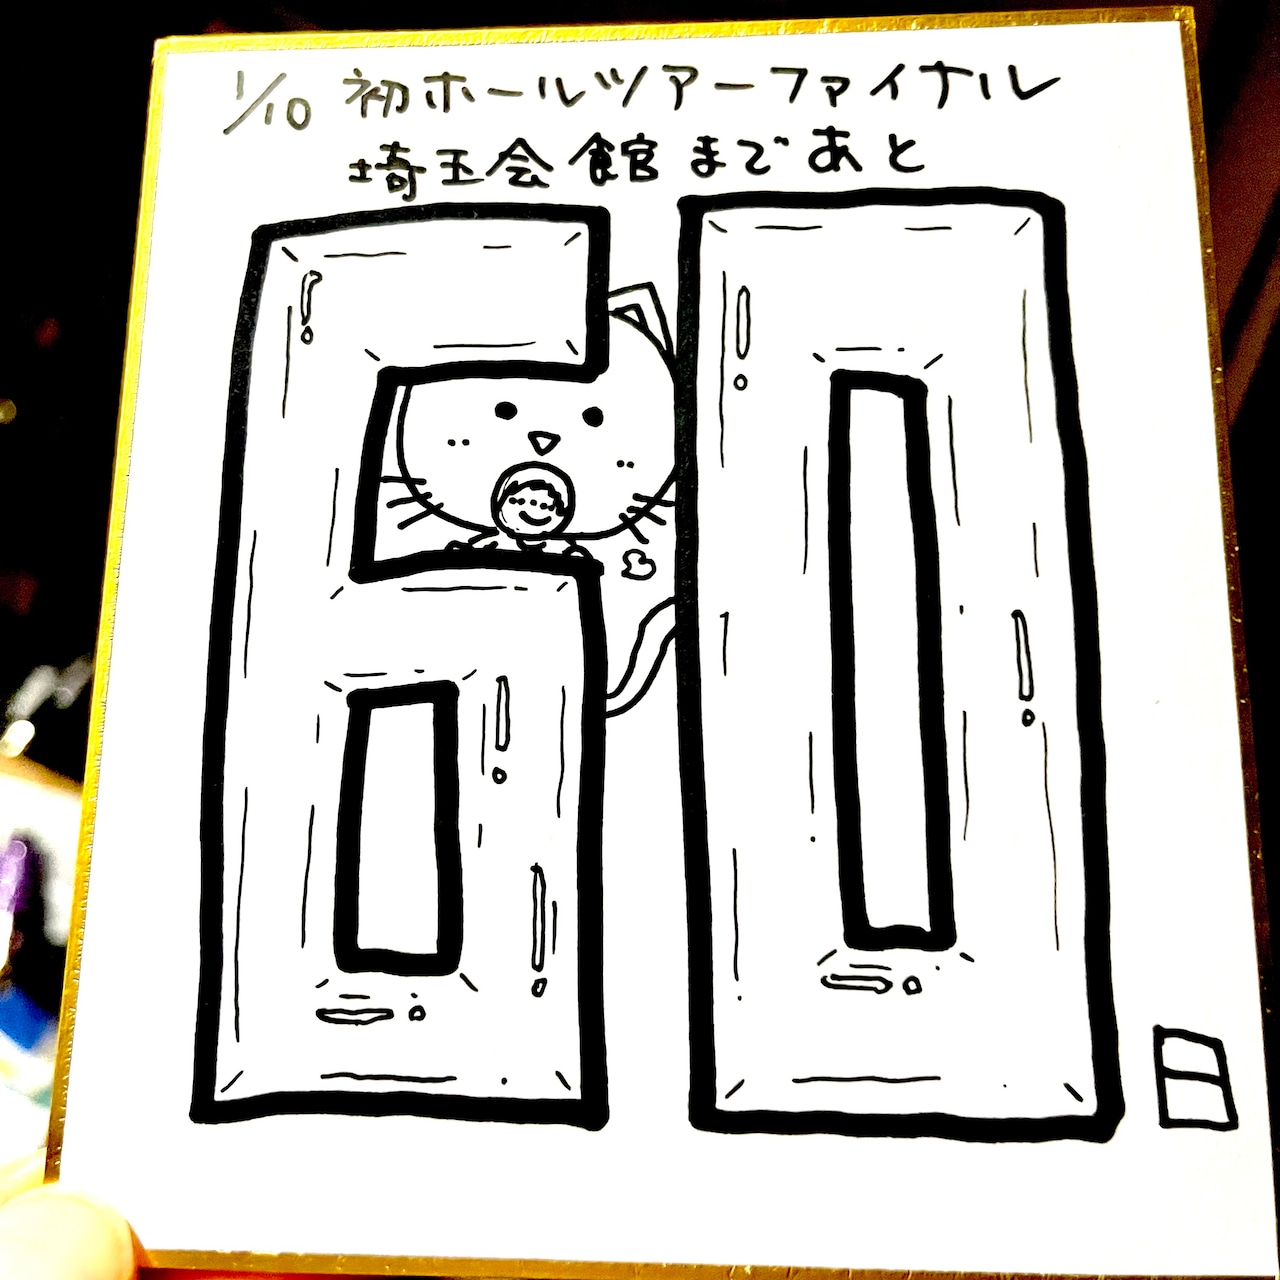 1/10 初ホールツアーファイナル
埼玉会館まであと
60
日